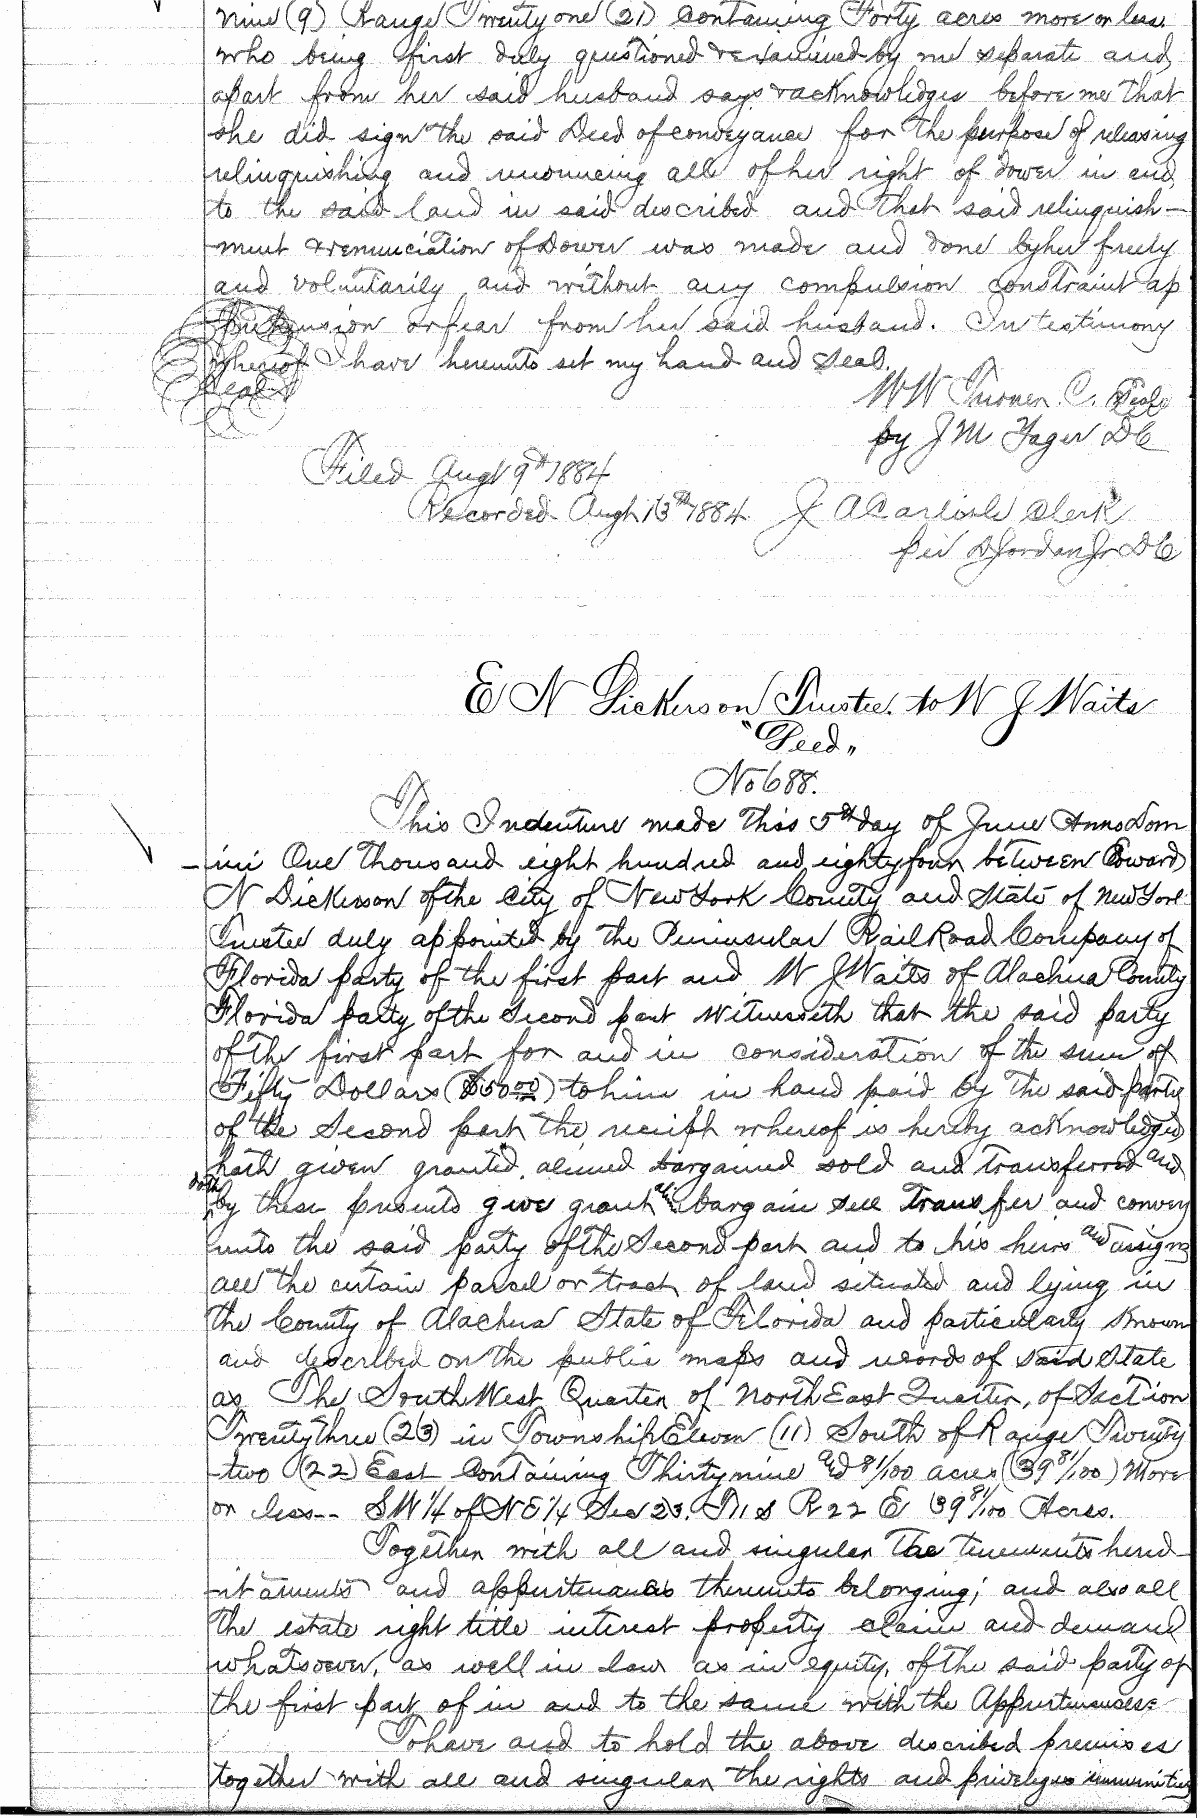 nine (9) Range Twenty one (21) containing Forty acres more or less.
who being first duly questioned & examined by me separate and
apart from her said husband says & acknowledges before me that
she did sign the said Deed of conveyance for the purpose of releasing
relinquishing and renouncing all of her right of dower in and
to the said land in said described and that said relinquish-
ment & renunciation of Dower was made and done by her freely
and voluntarily and without any compulsion constraint ap
prehension or fear from her said husband. In testimony
whereof I have hereunto set my hand and Seal.
Seal
W W Turner. C.
by J M Yager DC
Filed Augt 9th 1884
Recorded Augt 13th 1884 J A Carlisle Clerk
per D Jordan Jr DC
E N Dickerson Trustee. to W J Waits
"Deed"
No 688.
This Indenture made this 5th day of June Anno Dom
-ini One thousand eight hundred and eighty four between Edward
N Dickerson of the City of New York County and State of New York
Trustee duly appointed by the Peninsular Rail Road Company of
Florida party of the first part and W J Waits of Alachua County
Florida party of the Second part Witnesseth that the said party
of the first part for and in consideration of the sum of
Fifty Dollars ($50 00) to him in hand paid by the said party
of the Second part the receipt whereof is hereby acknowledged
hath given granted, aliened bargained sold and transferred and
doth by these presents give grant alien bargain sell transfer and convey
unto the said party of the Second part and to his heirs and assigns
all the certain parcel or tract of land situated and lying in
the County of Alachua State of Florida and particularly known
and described on the public maps and records of said State
as The South West Quarter of North East Quarter, of Section
Twenty three (23) in Township Eleven (11) South of Range Twenty
-two (22) East Containing Thirty nine and 81/100 acres (39 81/100) More
or less-- SW 1/4 of NE 1/4 Sec 23. T 11 S R 22 E 39 81/100 Acres.
Together with all and singular the tenements hered-
-itaments and appurtenances thereunto belonging; and also all
the estate right title interest property claim and demand
whatsoever, as well in law as in equity, of the said party of
the first part of in and to the same with the Appurtenances:
To have and to hold the above described premises
together with all and singular the rights and privileges immunities